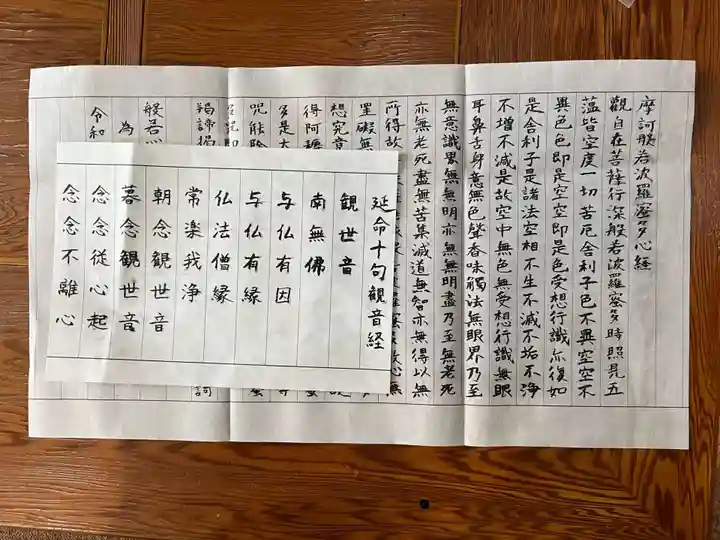 摩訶般若波羅蜜多心経
観自在菩薩行深般若波羅蜜多時照見五
蘊皆空度一切苦厄舎利子色不異空空不
異色色即是空空即是色受想行識亦復如
是舎利子是諸法空相不生不滅不垢不浄
不増不減是故空中無色無受想行識無眼
耳鼻舌身意無色聲香味觸法無眼界乃至
無意識界無無明亦無無明盡乃至無老死
亦無老死盡無苦集滅道無智亦無得以無
所得故
罣礙無
想究竟
得阿耨
多是大
呪能除
羯諦羯
般若心
為
令和
延命十句観音経
観世音
南無佛
与仏有因
与仏有縁
仏法僧縁
常楽我浄
朝念観世音
暮念観世音
念念従心起
念念不離心